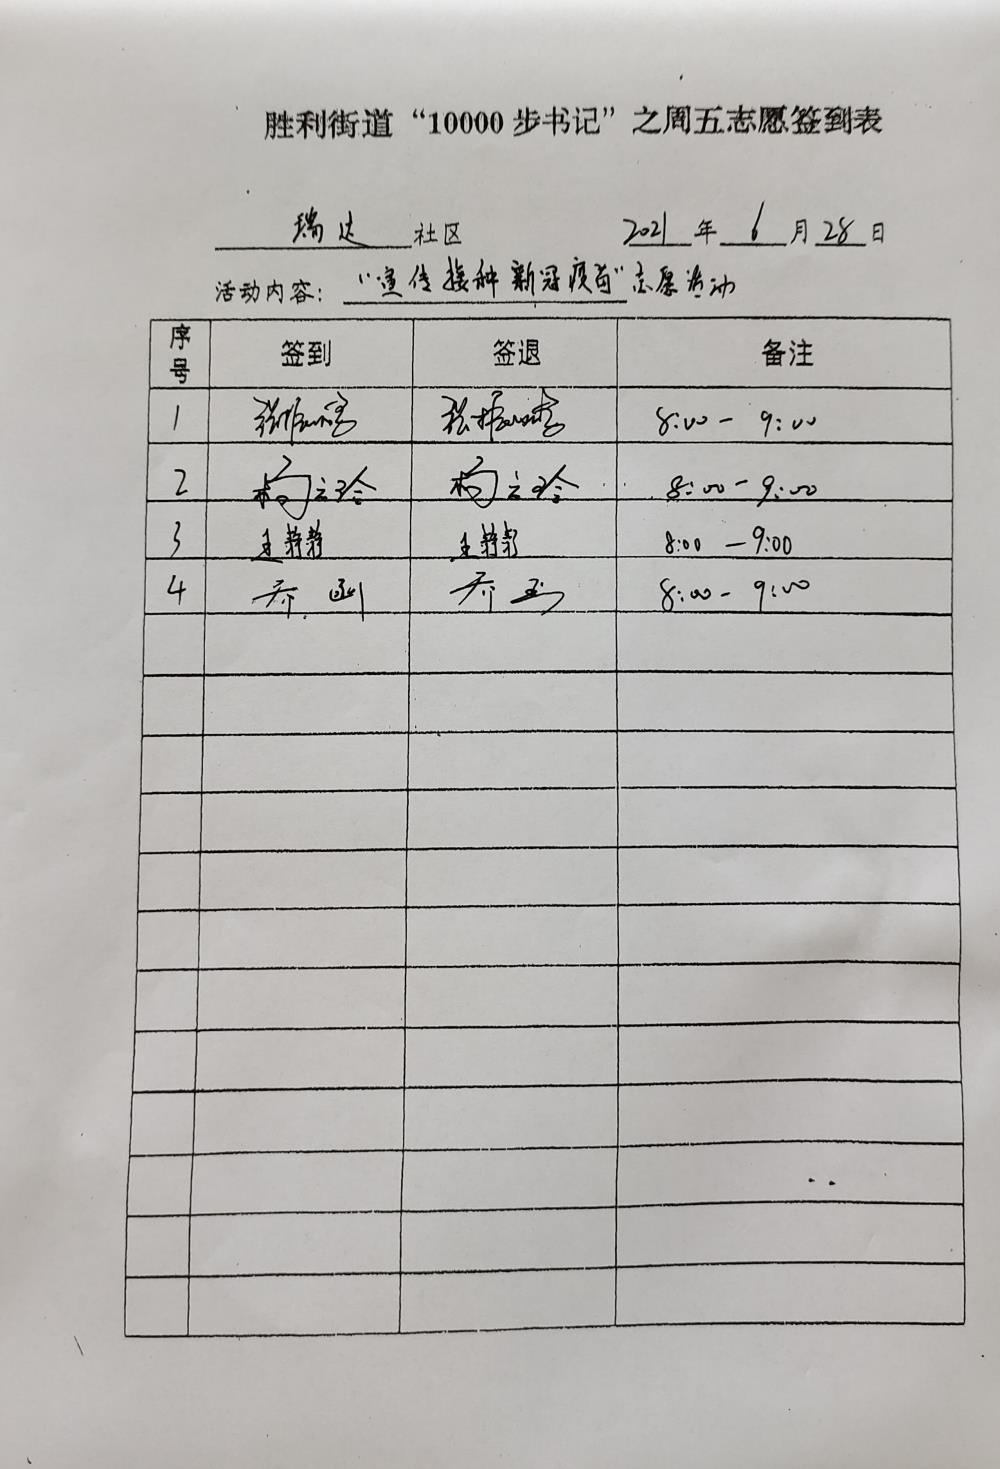 胜利街道“10000步书记”之周五志愿签到表
瑞达社区 2021年6月28日
活动内容：“宣传接种新冠疫苗”志愿活动
序号 签到 签退 备注
1 8:00-9:00
2 8:00-9:00
3 王静静 王静静 8:00-9:00
4 乔 乔 8:00-9:00